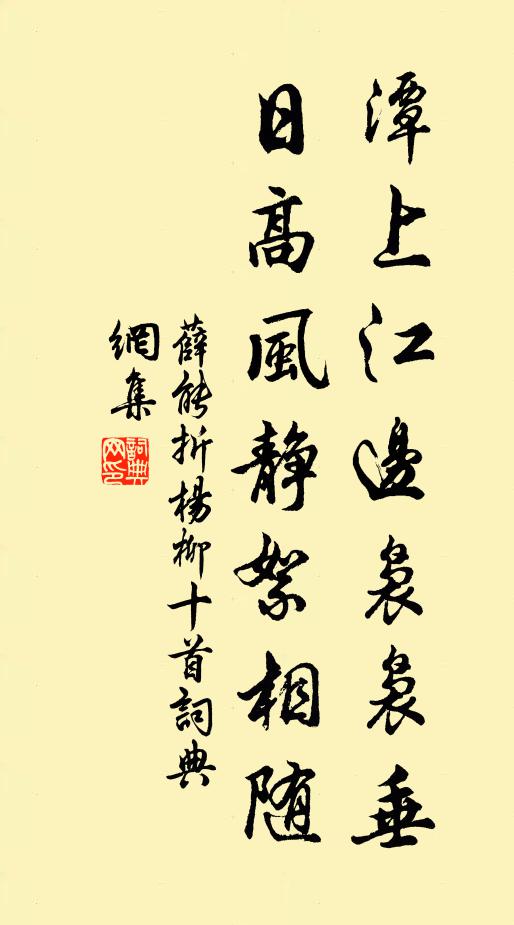 潭上江邊裊裊垂
日高風靜絮相隨
薛能折楊柳十首詞典
網集
詞典
网印